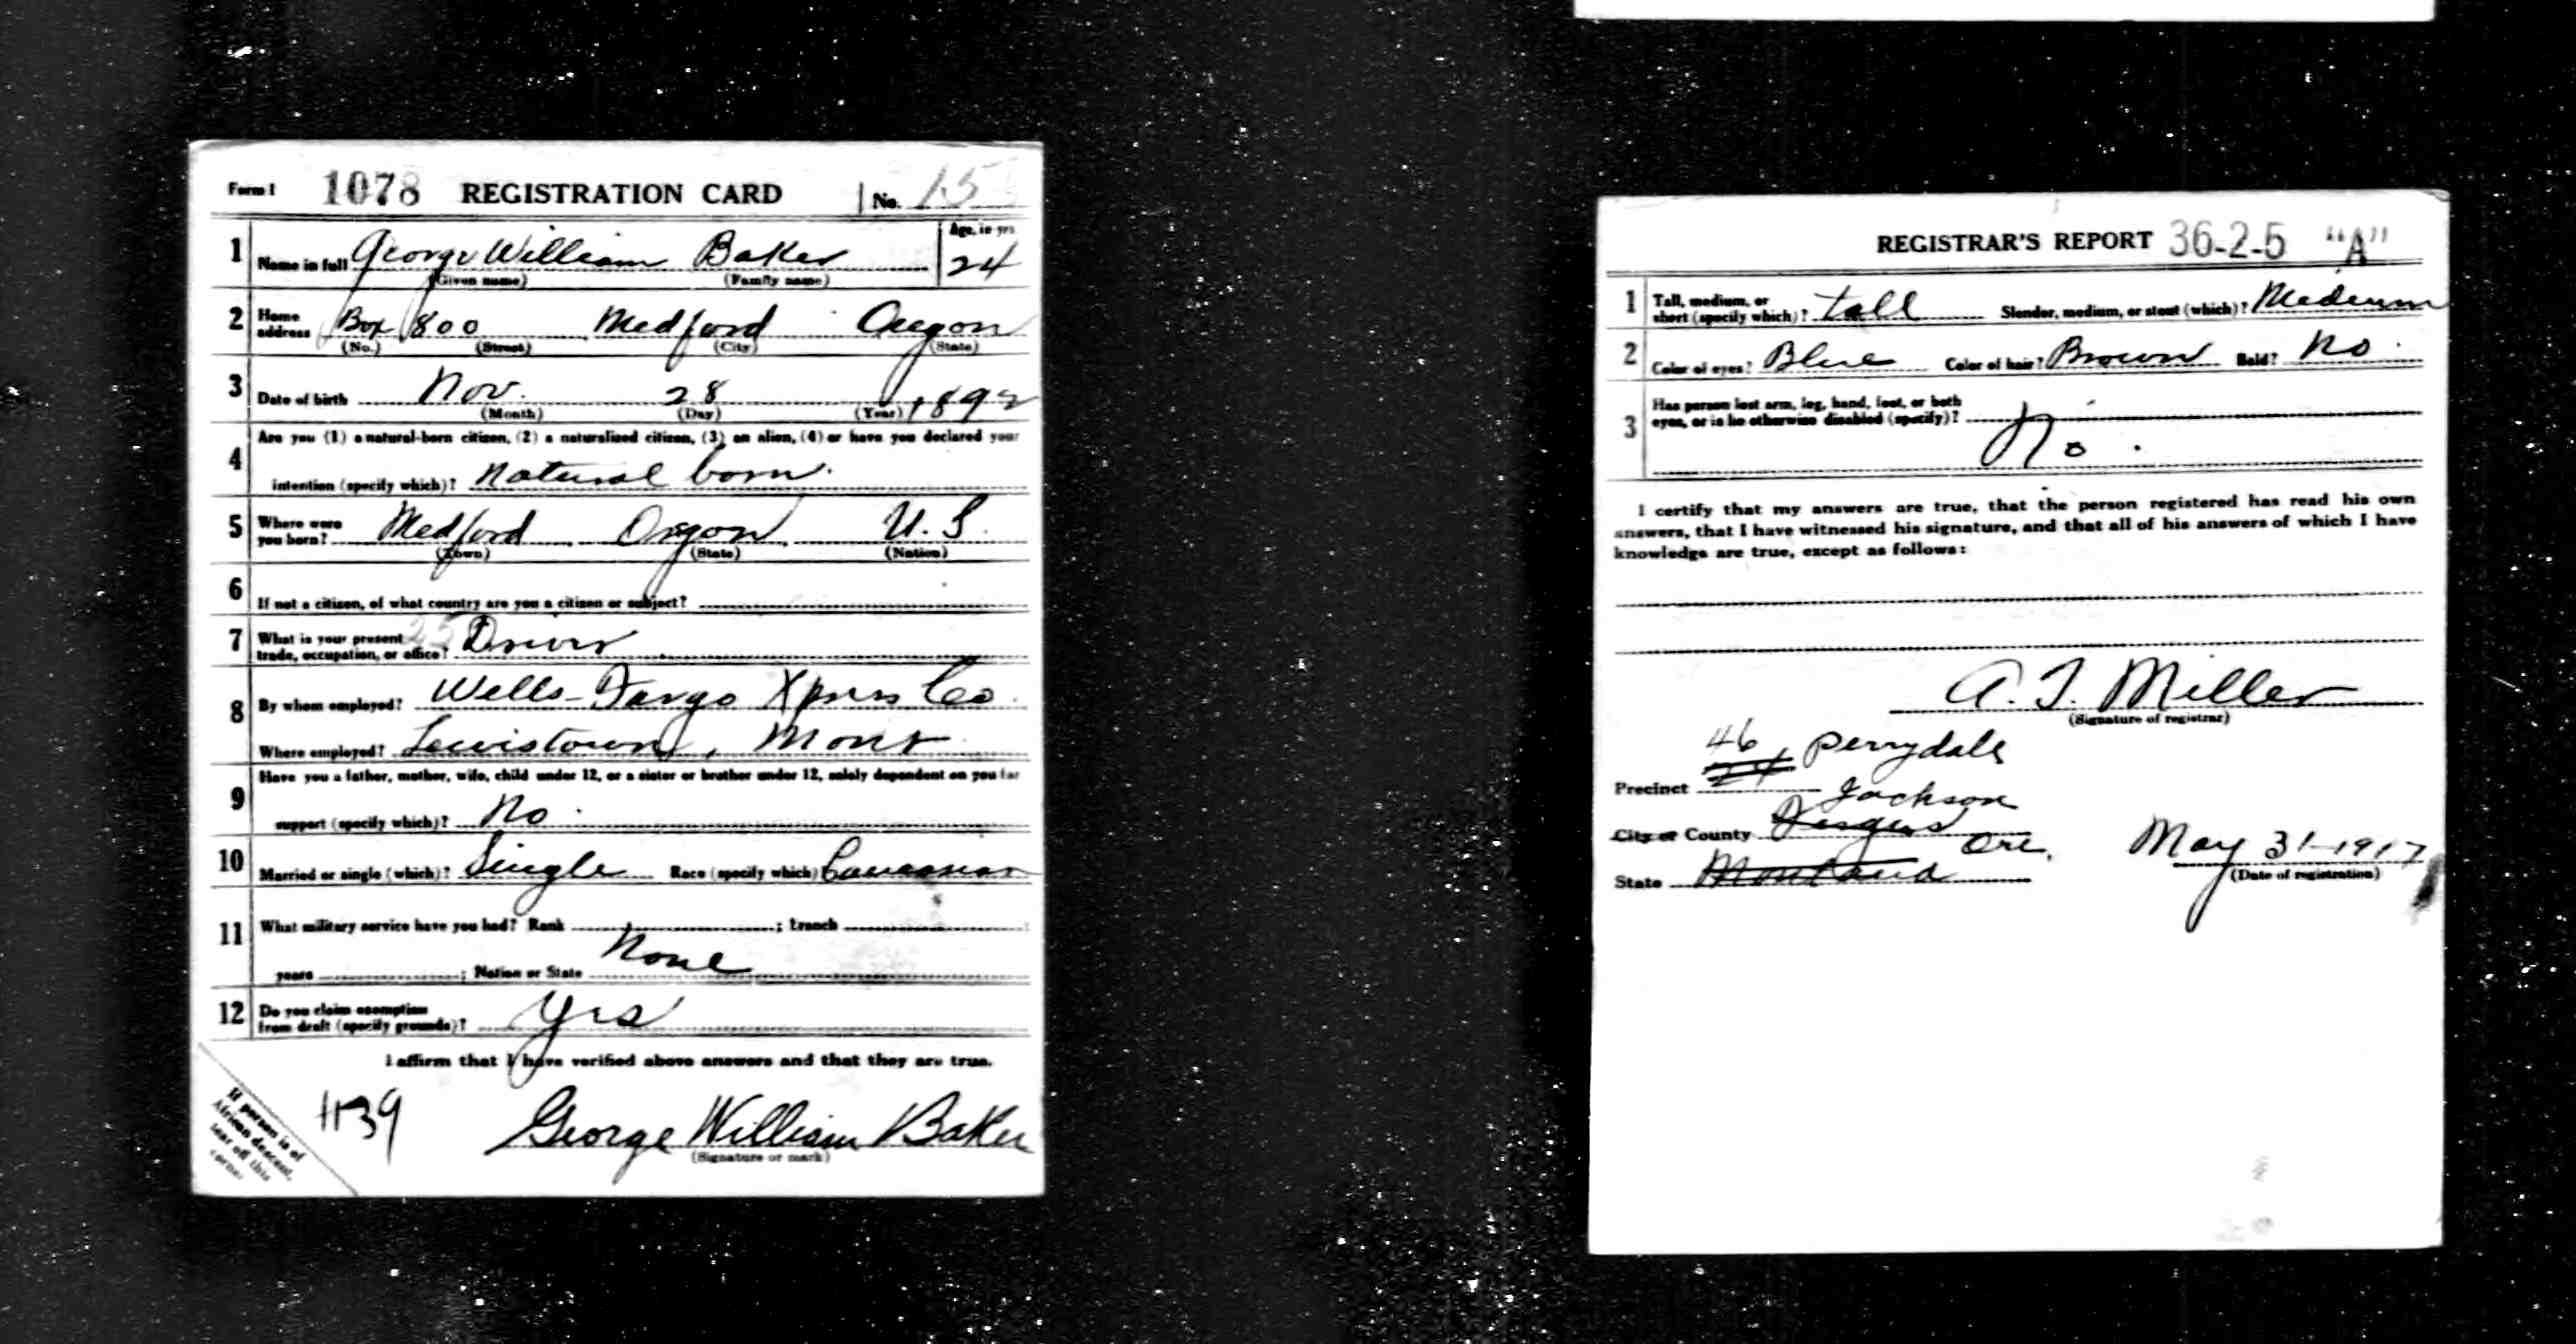 Form 1 1078 REGISTRATION CARD No. 15
Age, in yrs.
1 Name in full George William Baker 24
(Given name) (Family name)
2 Home address Box 800 Medford Oregon
(No.) (Street) (City) (State)
3 Date of birth Nov. 28 1892
(Month) (Day) (Year)
4 Are you (1) a natural-born citizen, (2) a naturalized citizen, (3) an alien, (4) or have you declared your
intention (specify which)? Natural born.
5 Where were you born? Medford Oregon U.S.
(Town) (State) (Nation)
6 If not a citizen, of what country are you a citizen or subject?
7 What is your present trade, occupation, or office? 25 Driver
8 By whom employed? Wells-Fargo Xpress Co.
Where employed? Lewistown, Mont
9 Have you a father, mother, wife, child under 12, or a sister or brother under 12, solely dependent on you for
support (specify which)? No.
10 Married or single (which)? Single Race (specify which) Caucasian
11 What military service have you had? Rank ; branch
years ; Nation or State None
12 Do you claim exemption from draft (specify grounds)? Yes
I affirm that I have verified above answers and that they are true.
If person is of
African descent,
tear off this
corner.
George William Baker
(Signature or mark)
REGISTRAR'S REPORT 36-2-5 "A"
1 Tall, medium, or short (specify which)? tall Slender, medium, or stout (which)? Medium
2 Color of eyes? Blue Color of hair? Brown Bald? No.
3 Has person lost arm, leg, hand, foot, or both
eyes, or is he otherwise disabled (specify)?
No.
I certify that my answers are true, that the person registered has read his own
answers, that I have witnessed his signature, and that all of his answers of which I have
knowledge are true, except as follows:
A. T. Miller
(Signature of registrar)
46 Perrydale
Precinct 24
Jackson
City or County Fergus
Ore. May 31-1917
State Montana (Date of registration)